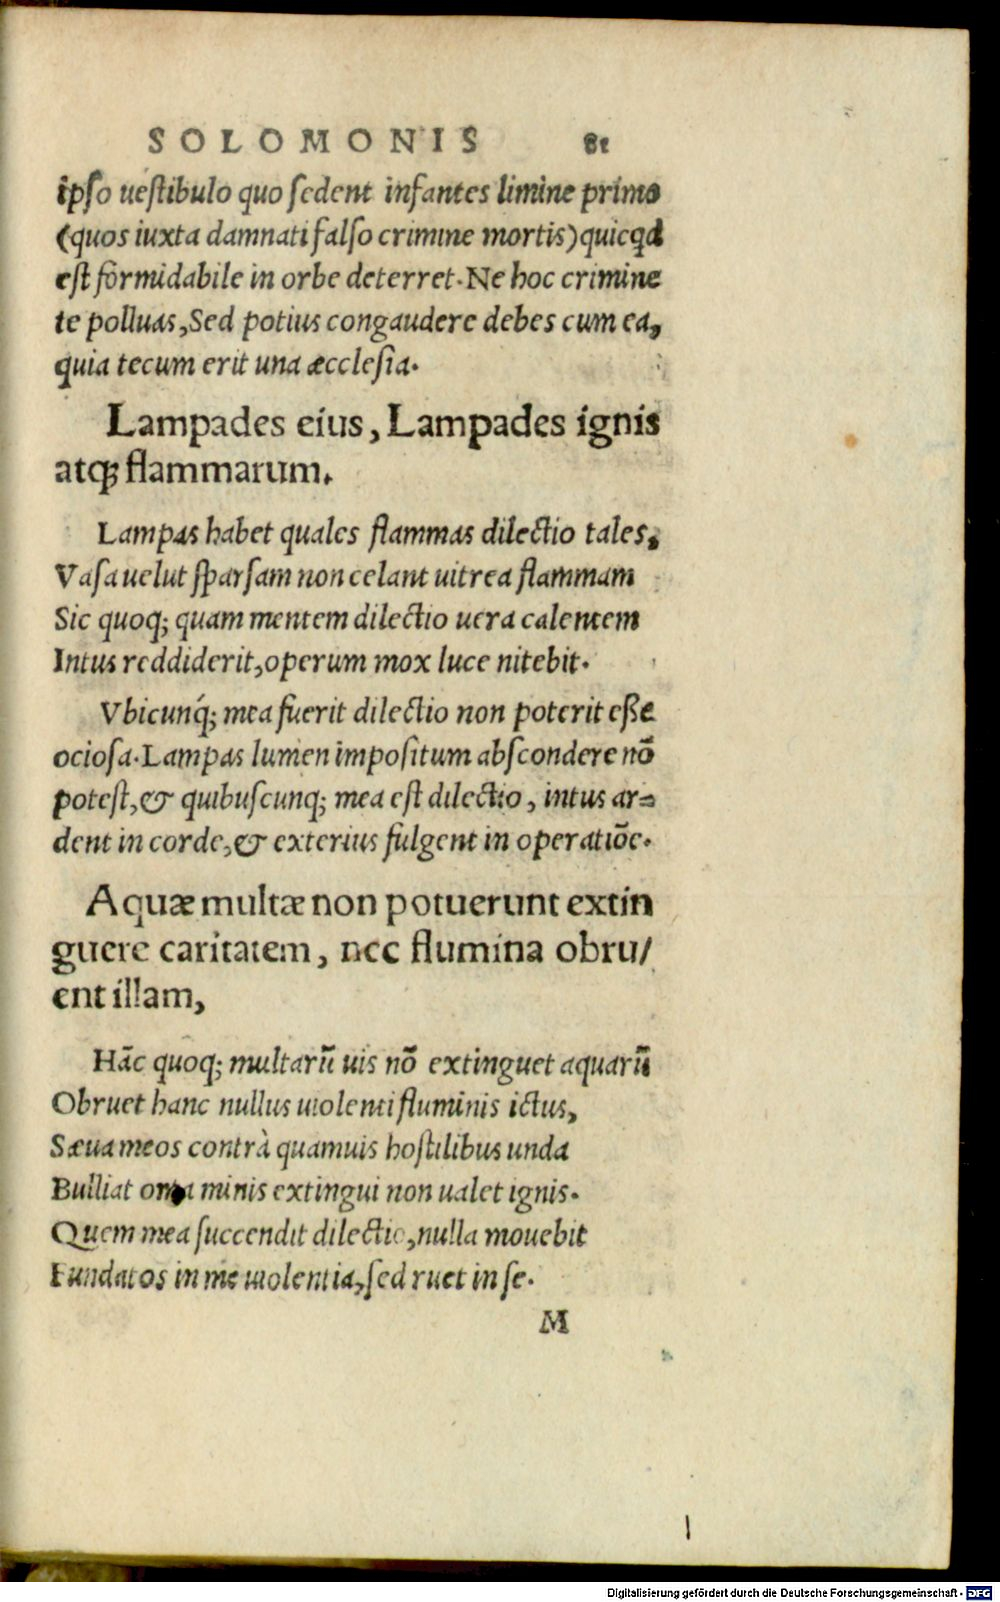 SOLOMONIS 81
ipso uestibulo quo sedent infantes limine primo
(quos iuxta damnati falso crimine mortis) quicqd
est formidabile in orbe deterret. Ne hoc crimine
te polluas, Sed potius congaudere debes cum ea,
quia tecum erit una æcclesia.
Lampades eius, Lampades ignis
atq; flammarum.
Lampas habet quales flammas dilectio tales,
Vasa uelut sparsam non celant uitrea flammam
Sic quoq; quam mentem dilectio uera calentem
Intus reddiderit, operum mox luce nitebit.
Vbicunq́; mea fuerit dilectio non poterit eße
ociosa. Lampas lumen impositum abscondere nō
potest, & quibuscunq; mea est dilectio, intus ar=
dent in corde, & exterius fulgent in operatiōe.
Aquæ multæ non potuerunt extin
guere caritatem, nec flumina obru/
ent illam,
Hāc quoq; multarū uis nō extinguet aquarū
Obruet hanc nullus uiolenti fluminis ictus,
Sæua meos contrà quamuis hostilibus unda
Bulliat minis extingui non ualet ignis.
Quem mea succendit dilectio, nulla mouebit
Fundatos in me uiolentia, sed ruet in se.
M
Digitalisierung gefördert durch die Deutsche Forschungsgemeinschaft - DFG